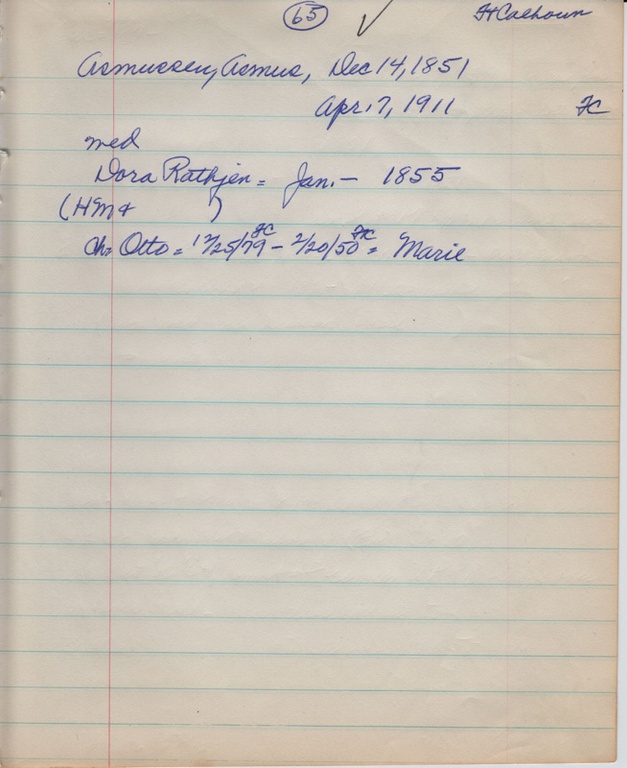 65 Ft Calhoun
Asmussen, Asmus, Dec 14, 1851
Apr. 7, 1911 FC
med
Dora Rathjen = Jan. - 1855
(HM & )
Ch = Otto = 12/25/79 FC - 2/20/50 FC = Marie